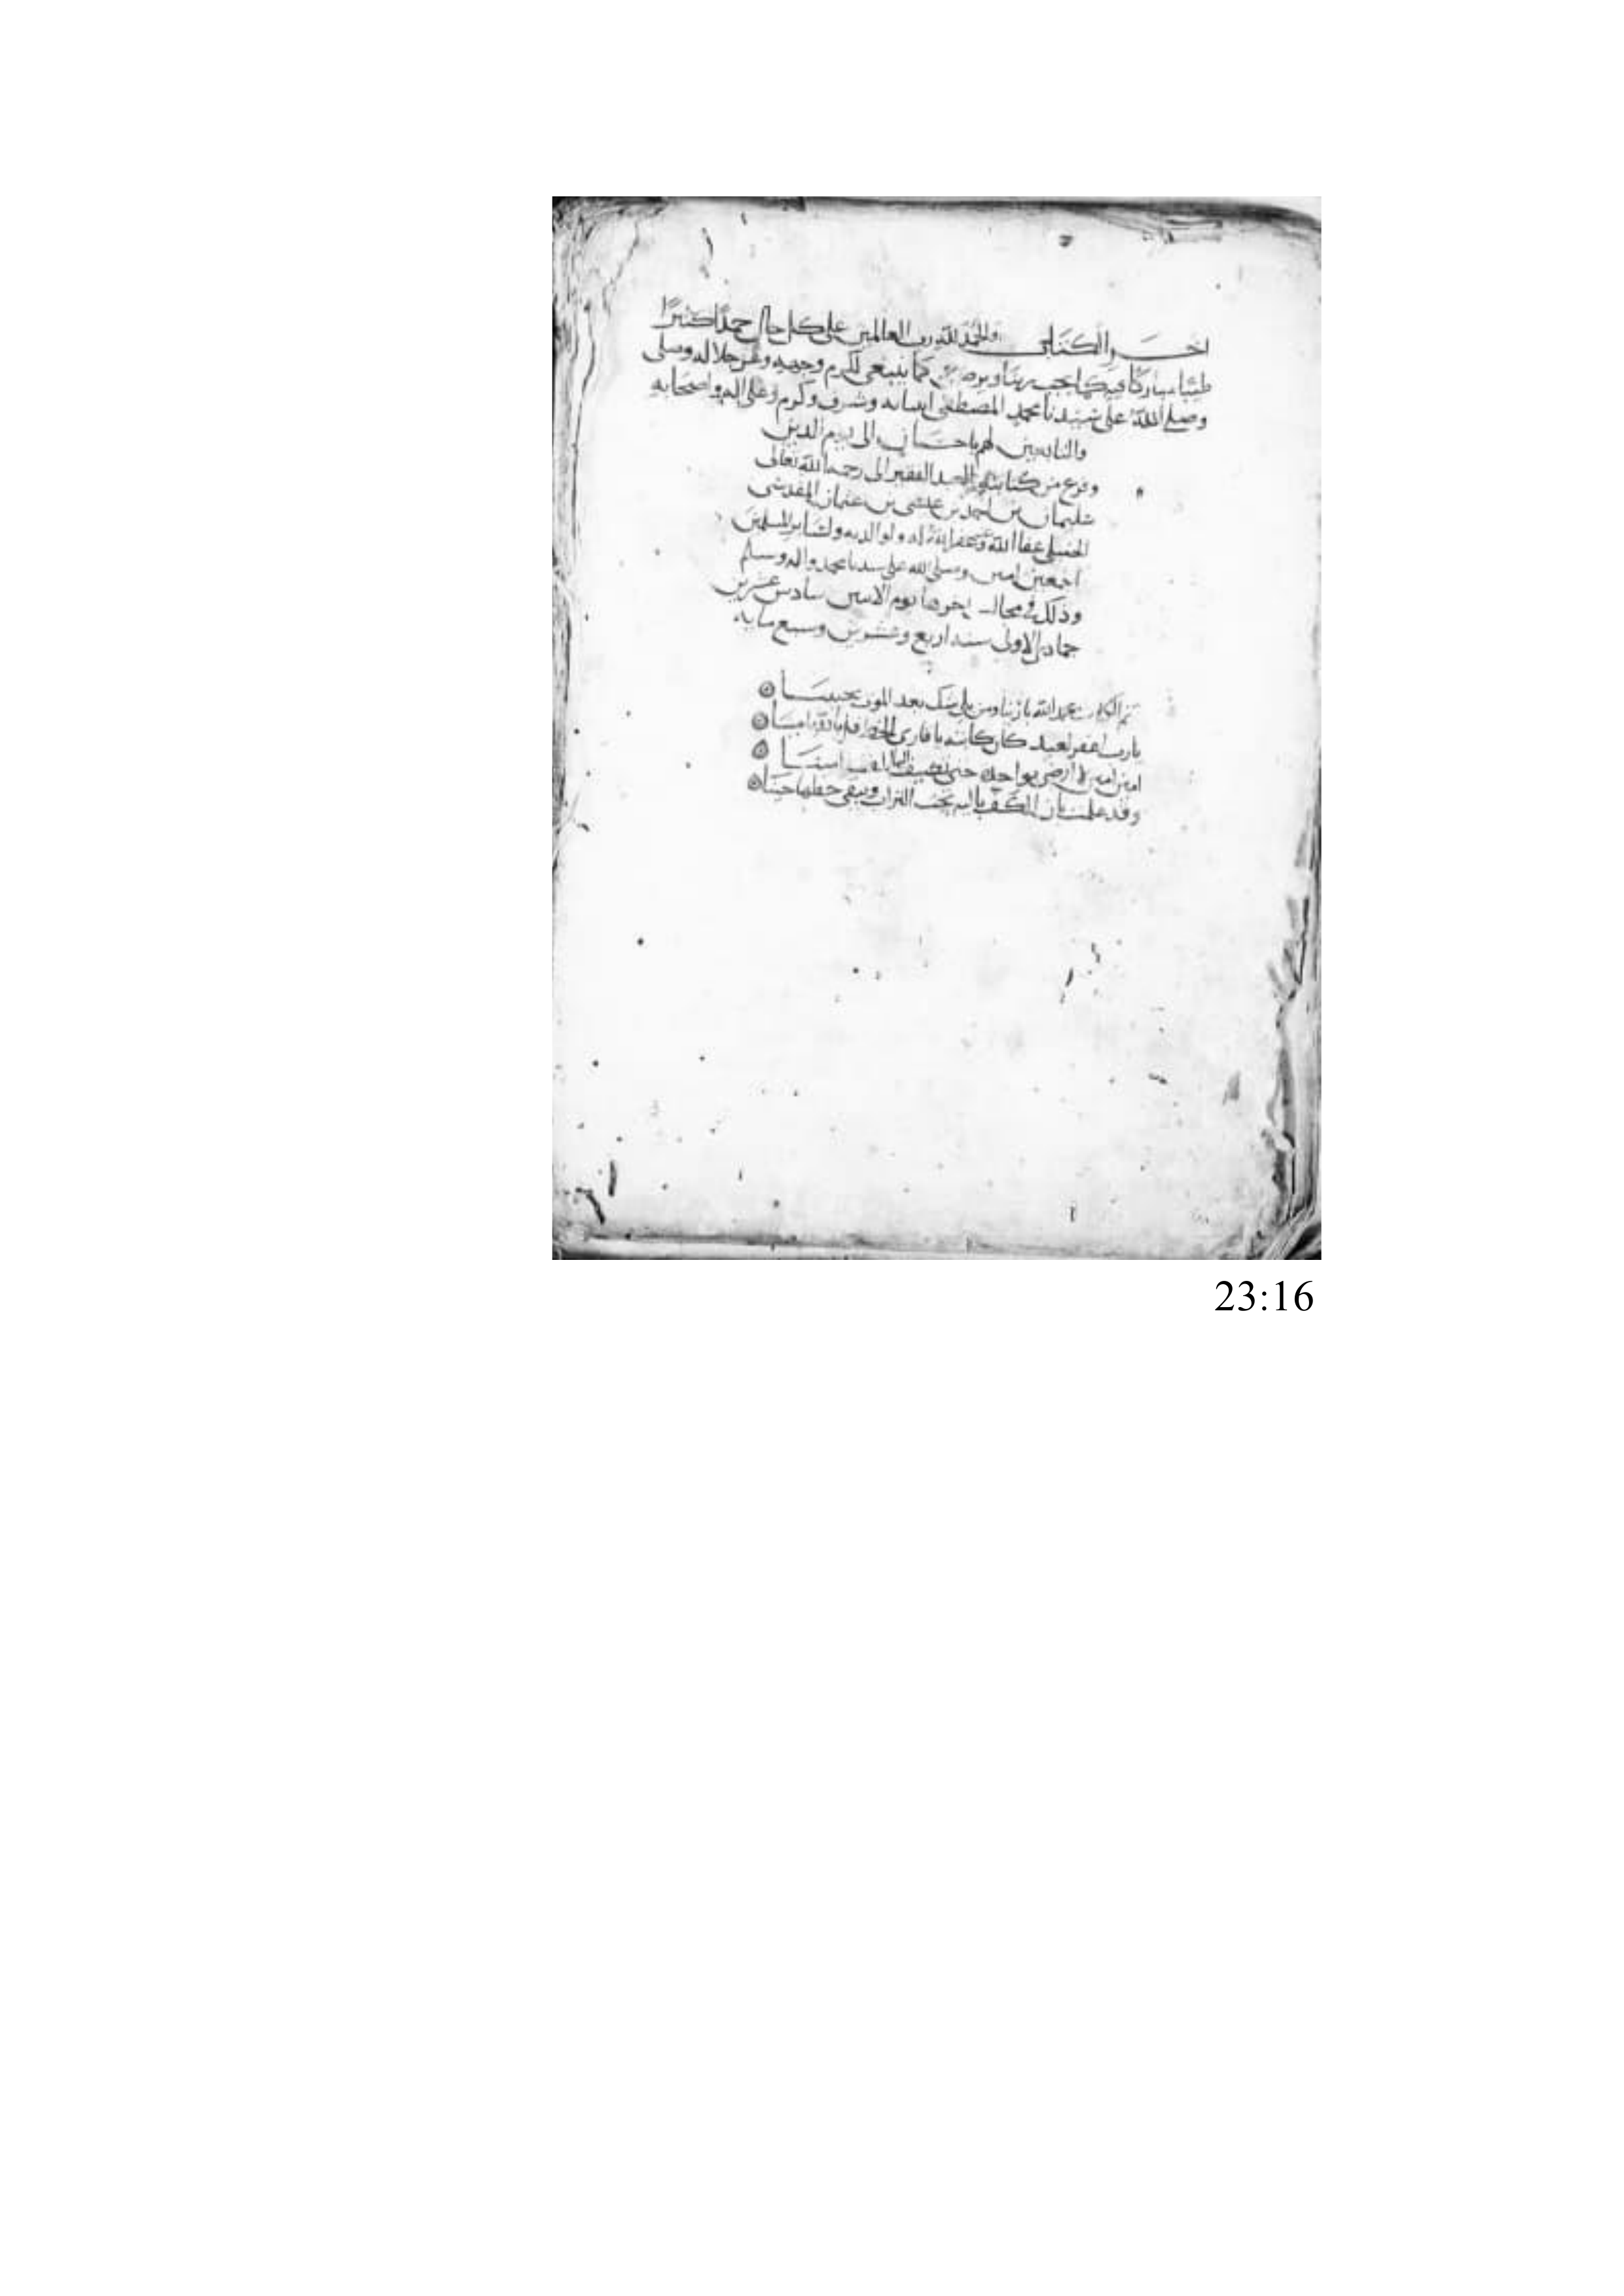 اخر الكتاب والحمد لله رب العالمين على كل حال حمدا كثيرا
طيبا مباركا فيه كما يحب ربنا ويرضى كما ينبغي لكرم وجهه وعز جلاله وصلى
وصلى الله على سيدنا محمد المصطفى وشرف وكرم وعلى اله واصحابه
والتابعين لهم باحسان الى يوم الدين
وفرغ من كتابته العبد الفقير الى رحمة الله تعالى
سليمان بن احمد بن عيسى بن عثمان المقدسي
الحنبلي عفا الله وغفر الله له ولوالديه ولسائر المسلمين
اجمعين امين وصلى الله على سيدنا محمد واله وسلم
وذلك في اخرها يوم الاثنين سادس عشرين
جمادى الاولى سنة اربع وعشرين وسبع مايه
تم الكتاب بحمد الله بارينا ومن بلى شك بعد الموت يحيينا
يارب اغفر لعبد كان كاتبه يا قارئ الخط قل بالله امينا
امين امين لا ارضى بواحدة حتى نضيف اليها الف امينا
وقد علمت بان الكف بالية تحت التراب ويبقى خطها حينا
23:16